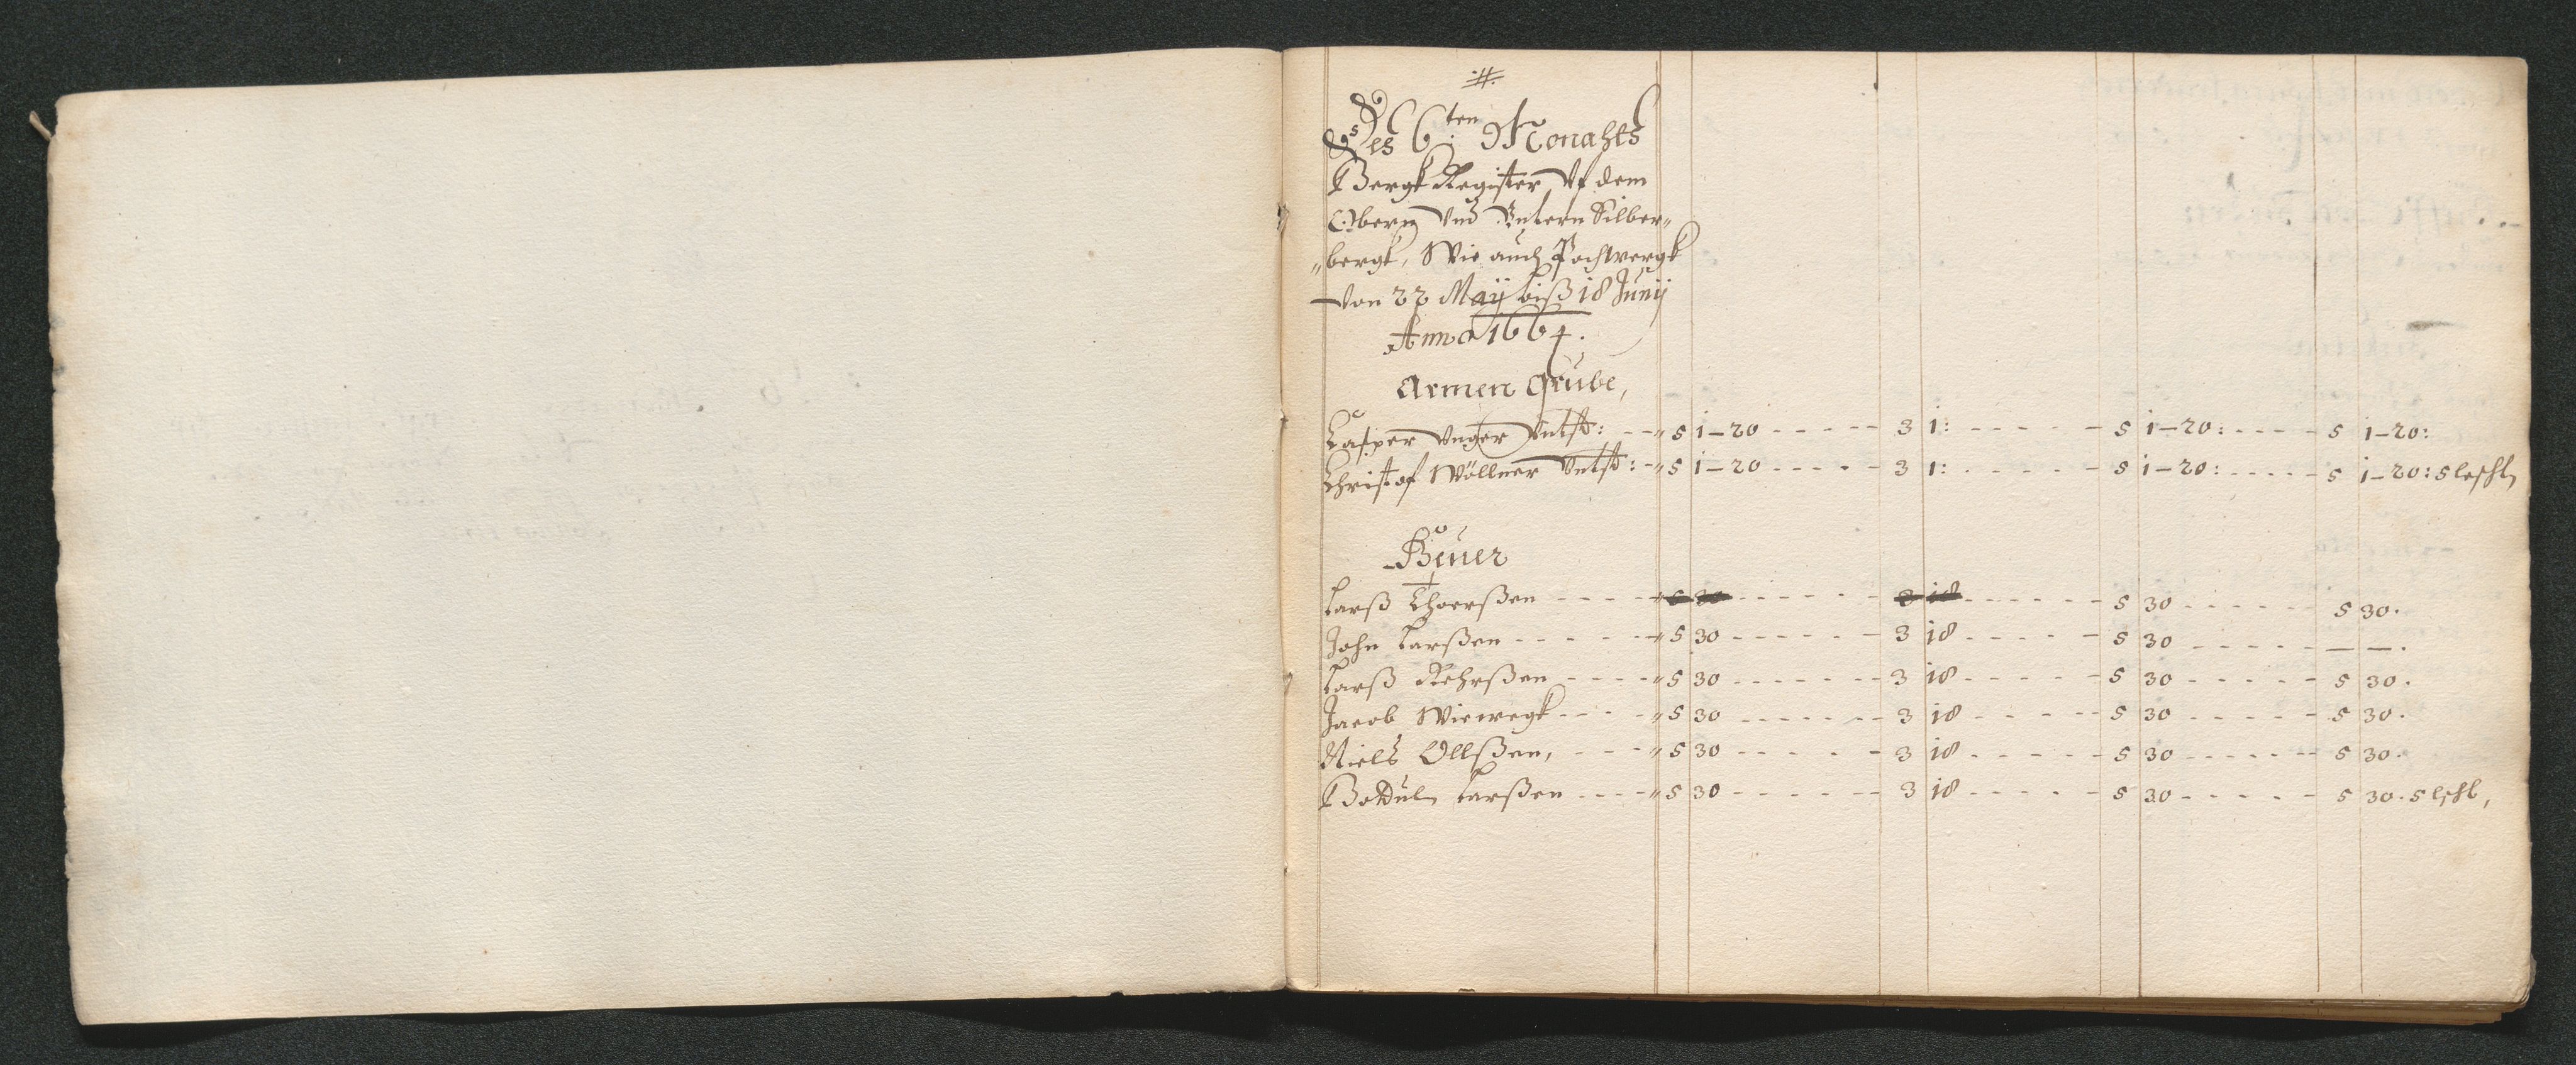 #.
Des 6ten Monahts
Bergk Register Vf dem
Obern Vnd Vntern Silber„
„bergk, Wie auch Pochwergk
Von 22 Maij biß 18 Junij
Anno 1664.
Armen Grube,
Casper Vnger Vntst: - - „ 5 1-20 - - - - - 3 1: - - - - - 5 1-20: - - - - 5 1-20:
Christof Wöllner Vntst: - „ 5 1-20 - - - - 3 1: - - - - - 5 1-20: - - - - 5 1-20: 5
Beuer
Larß Thoerßen - - - - „ 5 30 - - - - - - 3 18 - - - - - - 5 30 - - - - - 5 30.
John Larßen - - - - - „ 5 30 - - - - - - 3 18 - - - - - 5 30 - - - - - — —.
Larß Rehrßen - - - - „ 5 30 - - - - - - - 3 18 - - - - - 5 30 - - - - - 5 30.
Jacob Wiewegk - - - „ 5 30 - - - - - - 3 18 - - - - - 5 30 - - - - - 5 30.
Niels Ollßen, - - - - „ 5 30 - - - - - - 3 18 - - - - - 5 30 - - - - - - 5 30.
Larßen - - - - „ 5 30 - - - - - - - 3 18 - - - - - 5 30 - - - - - 5 30. 5